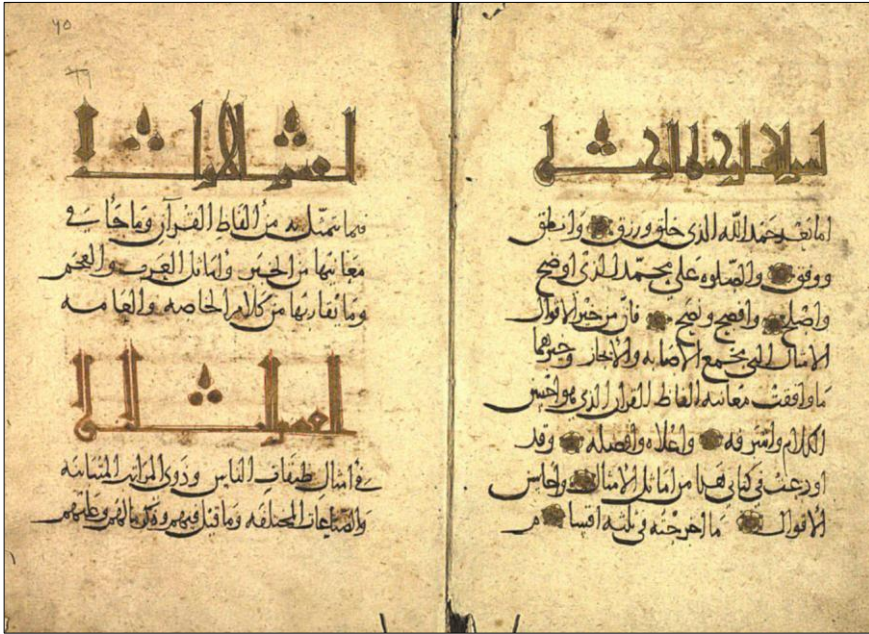 بسم الله الرحمن الرحيم
اما بعد حمد الله الذى خلق ورزق وانطق
ووفق والصلوه على محمد الذى اوضح
واصلح وافصح ونصح فان من خير الاقوال
الامثال التى تجمع الاصابه والايجاز وخيرها
ما وافقت معانيه الفاظ القرآن الذى هو احسن
الكلام واشرفه واعلاه وافضله وقد
اودعت فى كتابى هذا من اماثل الامثال واحاسن
الاقوال ما اخرجته فى ثلثه اقسام
٤٥
القسم الاول
فيما يتمثل به من الفاظ القرآن وما جا فى
معانيها من الخبر وامثال العرب والعجم
وما يقاربها من كلام الخاصه والعامه
القسم الثانى
فى امثال طبقات الناس وذوى المراتب المتباينه
والصناعات المختلفه وما قيل فيهم وذكر ما لهم وعليهم